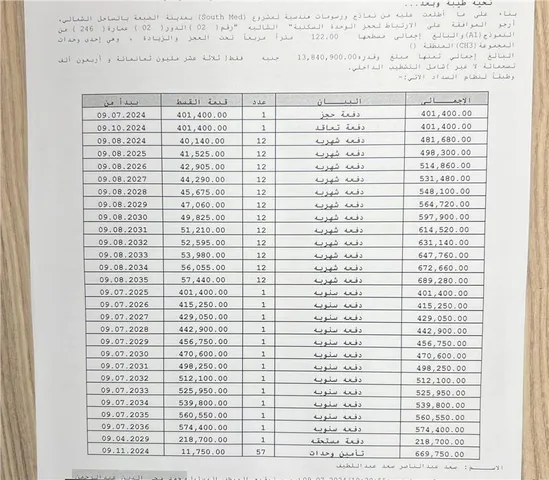 تحية طيبة وبعد...
بناء على ما أطلعت عليه من نماذج ورسومات هندسية لمشروع (South Med) بمدينة الضبعة بالساحل الشمالي،
أرجو الموافقة على الارتباط لحجز الوحدة السكنية "الشاليه" رقم( 02 )الدور( 02 ) عمارة( 246 ) من
النموذج(A1)والبالغ إجمالي مسطحها 122.00 متراً مربعاً تحت العجز والزيادة ، وهي إحدى وحدات
المجموعة(CH3)المنطقة ()
البالغ إجمالي ثمنها مبلغ وقدره،13,840,900.00 جنيه فقط( ثلاثة عشر مليون ثمانمائة و أربعون ألف
تسعمائة لا غير )شامل التشطيب الداخلي.
وطبقاً لنظام السداد الآتي:-
الإجمالـــي البيـــــان عدد قيمة القسط يبتدأ من
401,400.00 دفعة حجز 1 401,400.00 09.07.2024
401,400.00 دفعة تعاقد 1 401,400.00 09.10.2024
481,680.00 دفعه شهريه 12 40,140.00 09.08.2024
498,300.00 دفعه شهريه 12 41,525.00 09.08.2025
514,860.00 دفعه شهريه 12 42,905.00 09.08.2026
531,480.00 دفعه شهريه 12 44,290.00 09.08.2027
548,100.00 دفعه شهريه 12 45,675.00 09.08.2028
564,720.00 دفعه شهريه 12 47,060.00 09.08.2029
597,900.00 دفعه شهريه 12 49,825.00 09.08.2030
614,520.00 دفعه شهريه 12 51,210.00 09.08.2031
631,140.00 دفعه شهريه 12 52,595.00 09.08.2032
647,760.00 دفعه شهريه 12 53,980.00 09.08.2033
672,660.00 دفعه شهريه 12 56,055.00 09.08.2034
689,280.00 دفعه شهريه 12 57,440.00 09.08.2035
401,400.00 دفعه سنويه 1 401,400.00 09.07.2025
415,250.00 دفعه سنويه 1 415,250.00 09.07.2026
429,050.00 دفعه سنويه 1 429,050.00 09.07.2027
442,900.00 دفعه سنويه 1 442,900.00 09.07.2028
456,750.00 دفعه سنويه 1 456,750.00 09.07.2029
470,600.00 دفعه سنويه 1 470,600.00 09.07.2030
498,250.00 دفعه سنويه 1 498,250.00 09.07.2031
512,100.00 دفعه سنويه 1 512,100.00 09.07.2032
525,950.00 دفعه سنويه 1 525,950.00 09.07.2033
539,800.00 دفعه سنويه 1 539,800.00 09.07.2034
560,550.00 دفعه سنويه 1 560,550.00 09.07.2035
574,400.00 دفعه سنويه 1 574,400.00 09.07.2036
218,700.00 دفعة مستحقه 1 218,700.00 09.04.2029
669,750.00 تأمين وحدات 57 11,750.00 09.11.2024
الاســـم : سعد عبدالناصر سعد عبداللطيف